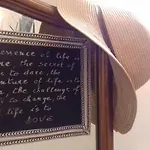 of life
the secret of
to dare, the
of life is
the challenge of
to change, the
life is to
LOVE